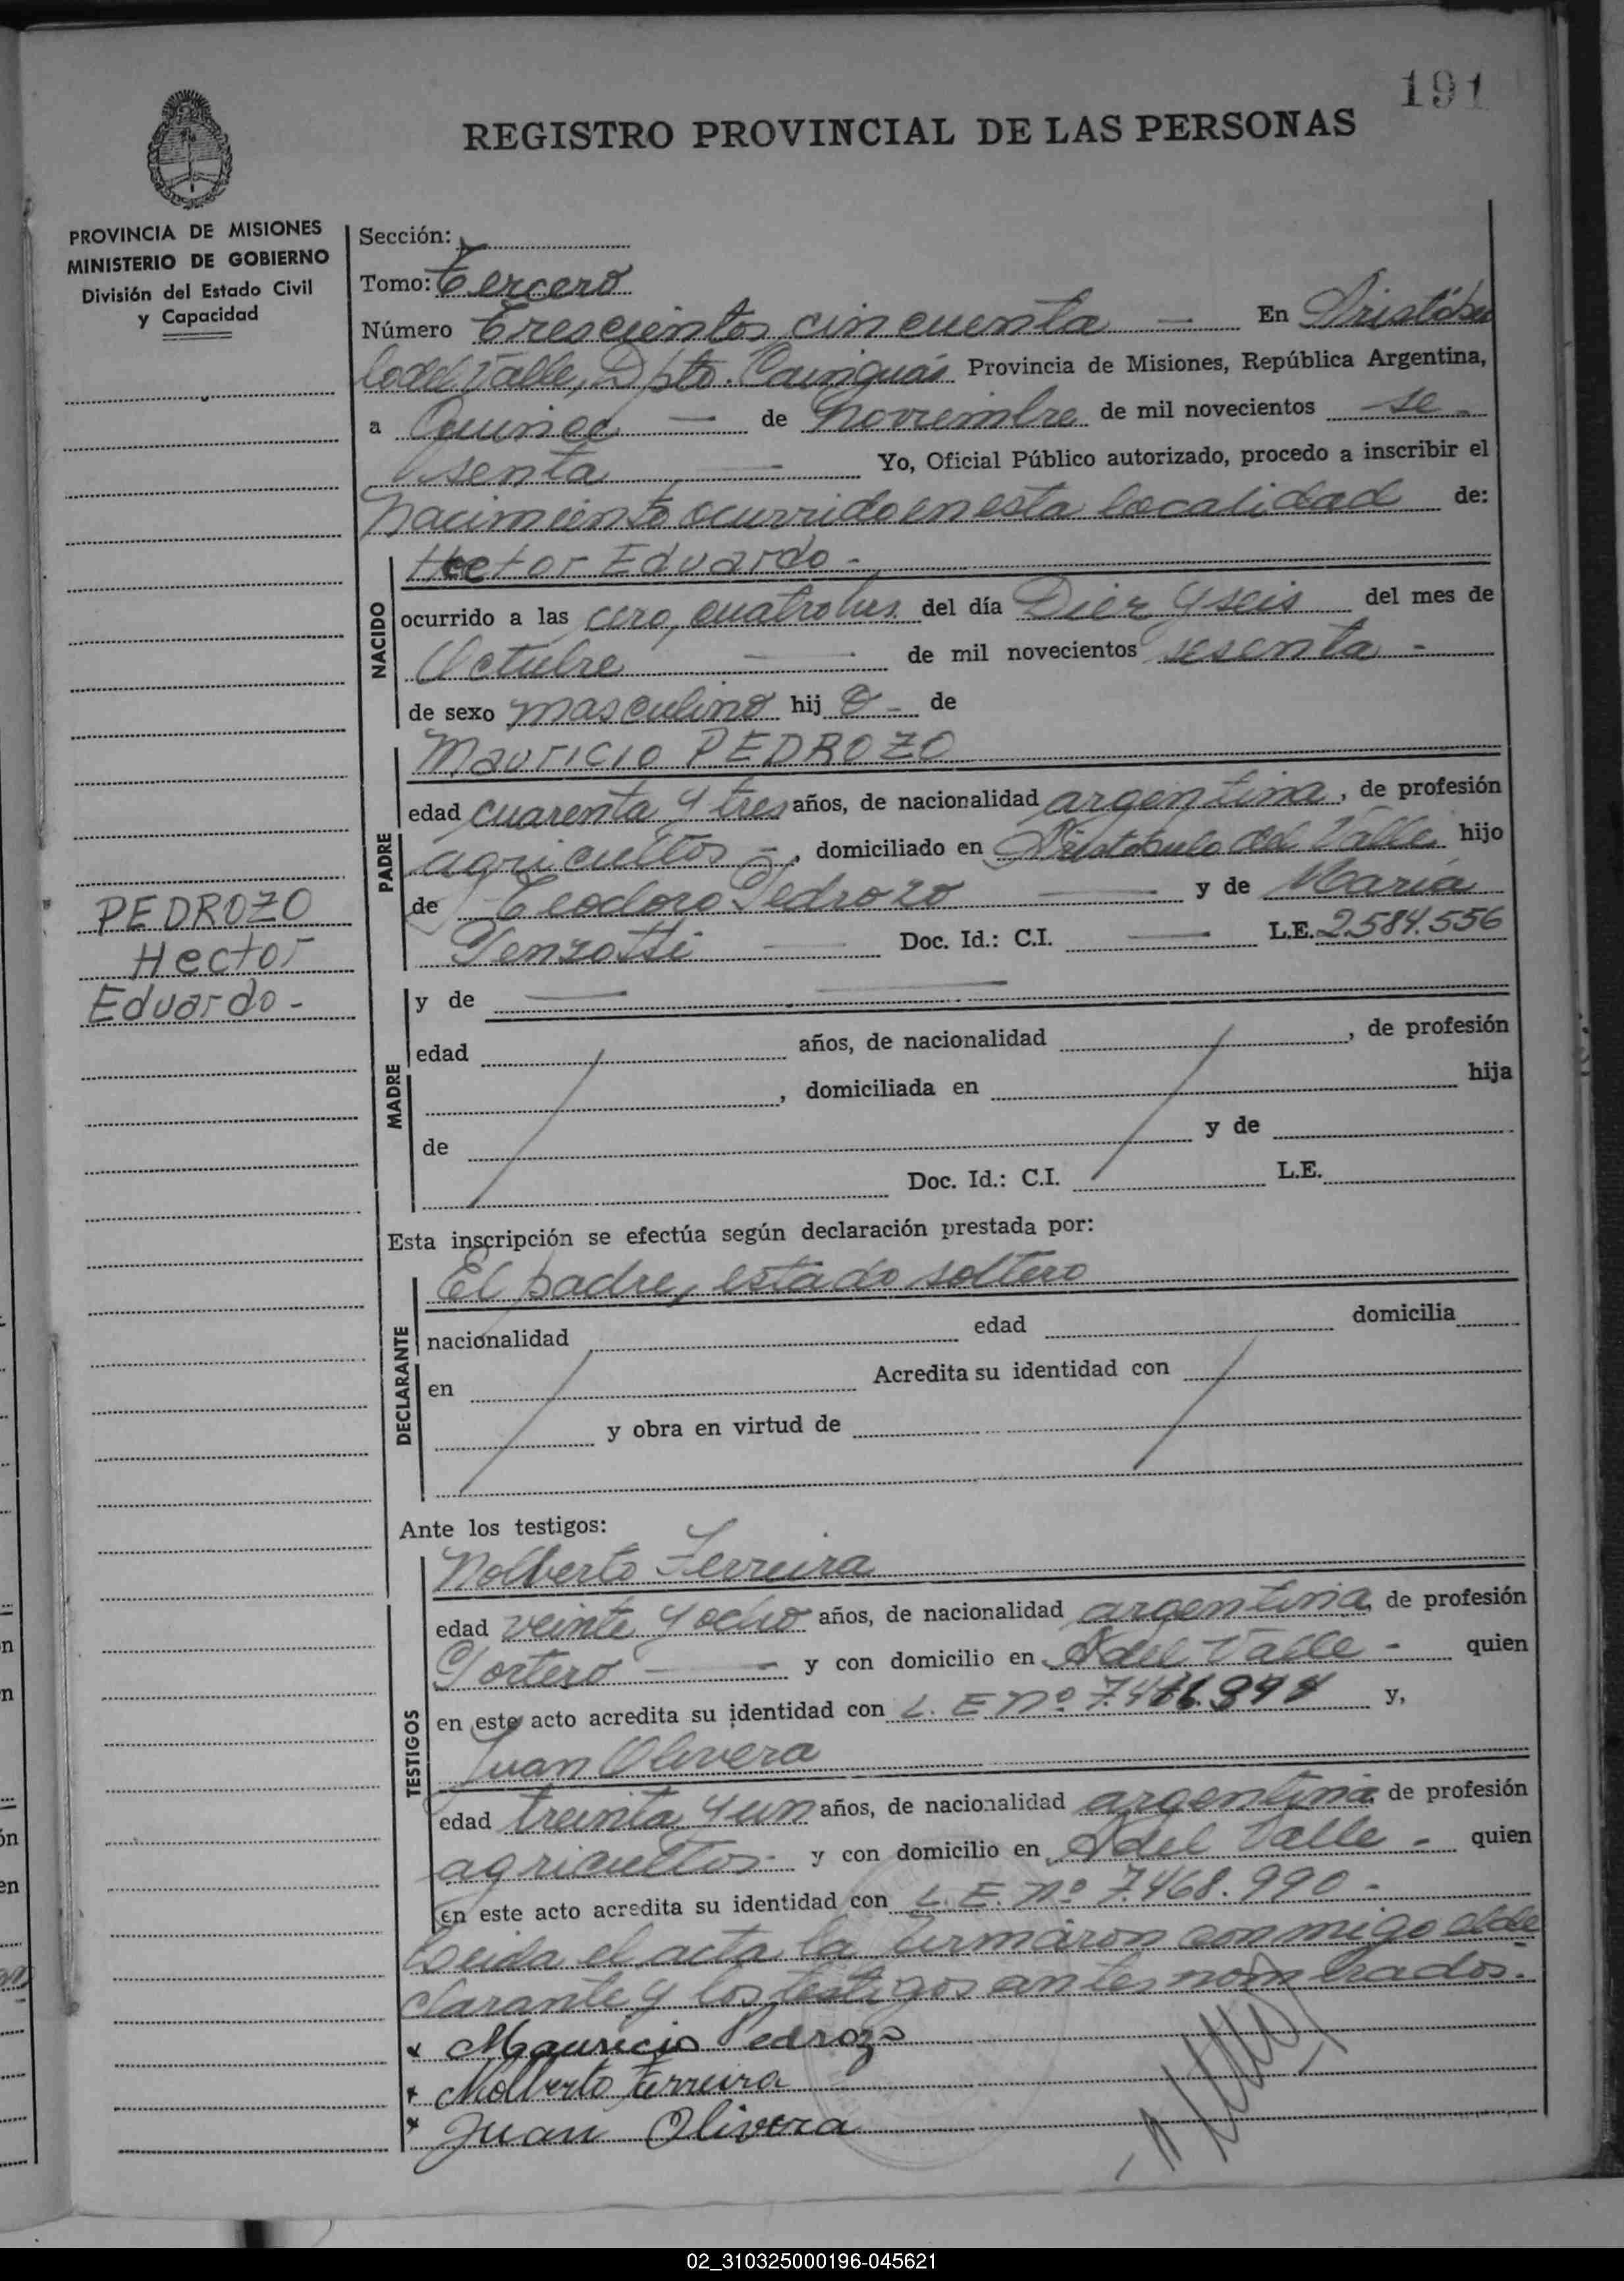 191
REGISTRO PROVINCIAL DE LAS PERSONAS
PROVINCIA DE MISIONES
MINISTERIO DE GOBIERNO
División del Estado Civil
y Capacidad
PEDROZO
Hector
Eduardo -
Sección:
Tomo: Tercero
Número Trescientos cincuenta — En Aristóbu
lo del Valle, Dpto. Cainguás Provincia de Misiones, República Argentina,
a Quince — de noviembre de mil novecientos se -
senta — Yo, Oficial Público autorizado, procedo a inscribir el
Nacimiento ocurrido en esta localidad de:
NACIDO
Hector Eduardo -
ocurrido a las cero, cuatro hs. del día Diez y seis del mes de
Octubre — de mil novecientos sesenta -
de sexo masculino hij o - de
PADRE
Mauricio PEDROZO
edad cuarenta y tres años, de nacionalidad argentina, de profesión
agricultor -, domiciliado en Aristobulo del Valle hijo
de Teodoro Pedrozo — y de Maria
— Doc. Id.: C.I. — L.E. 2.584.556
MADRE
y de — —
edad años, de nacionalidad , de profesión
, domiciliada en hija
de y de
Doc. Id.: C.I. L.E.
Esta inscripción se efectúa según declaración prestada por:
DECLARANTE
El padre, estado soltero
nacionalidad edad domicilia
en Acredita su identidad con
y obra en virtud de
Ante los testigos:
TESTIGOS
Nolberto Ferreira
edad veinte y ocho años, de nacionalidad argentina, de profesión
Portero — y con domicilio en A del Valle - quien
en este acto acredita su identidad con L. E. nº y,
Juan Olivera
edad treinta y un años, de nacionalidad argentina de profesión
agricultor - y con domicilio en A del Valle - quien
en este acto acredita su identidad con L. E. nº 7.468.990 -
Leida el acta la firmaron conmigo el de
clarante y los testigos antes nombrados. -
x Mauricio Pedrozo
x Nolberto Ferreira
x Juan Olivera
02_310325000196-045621